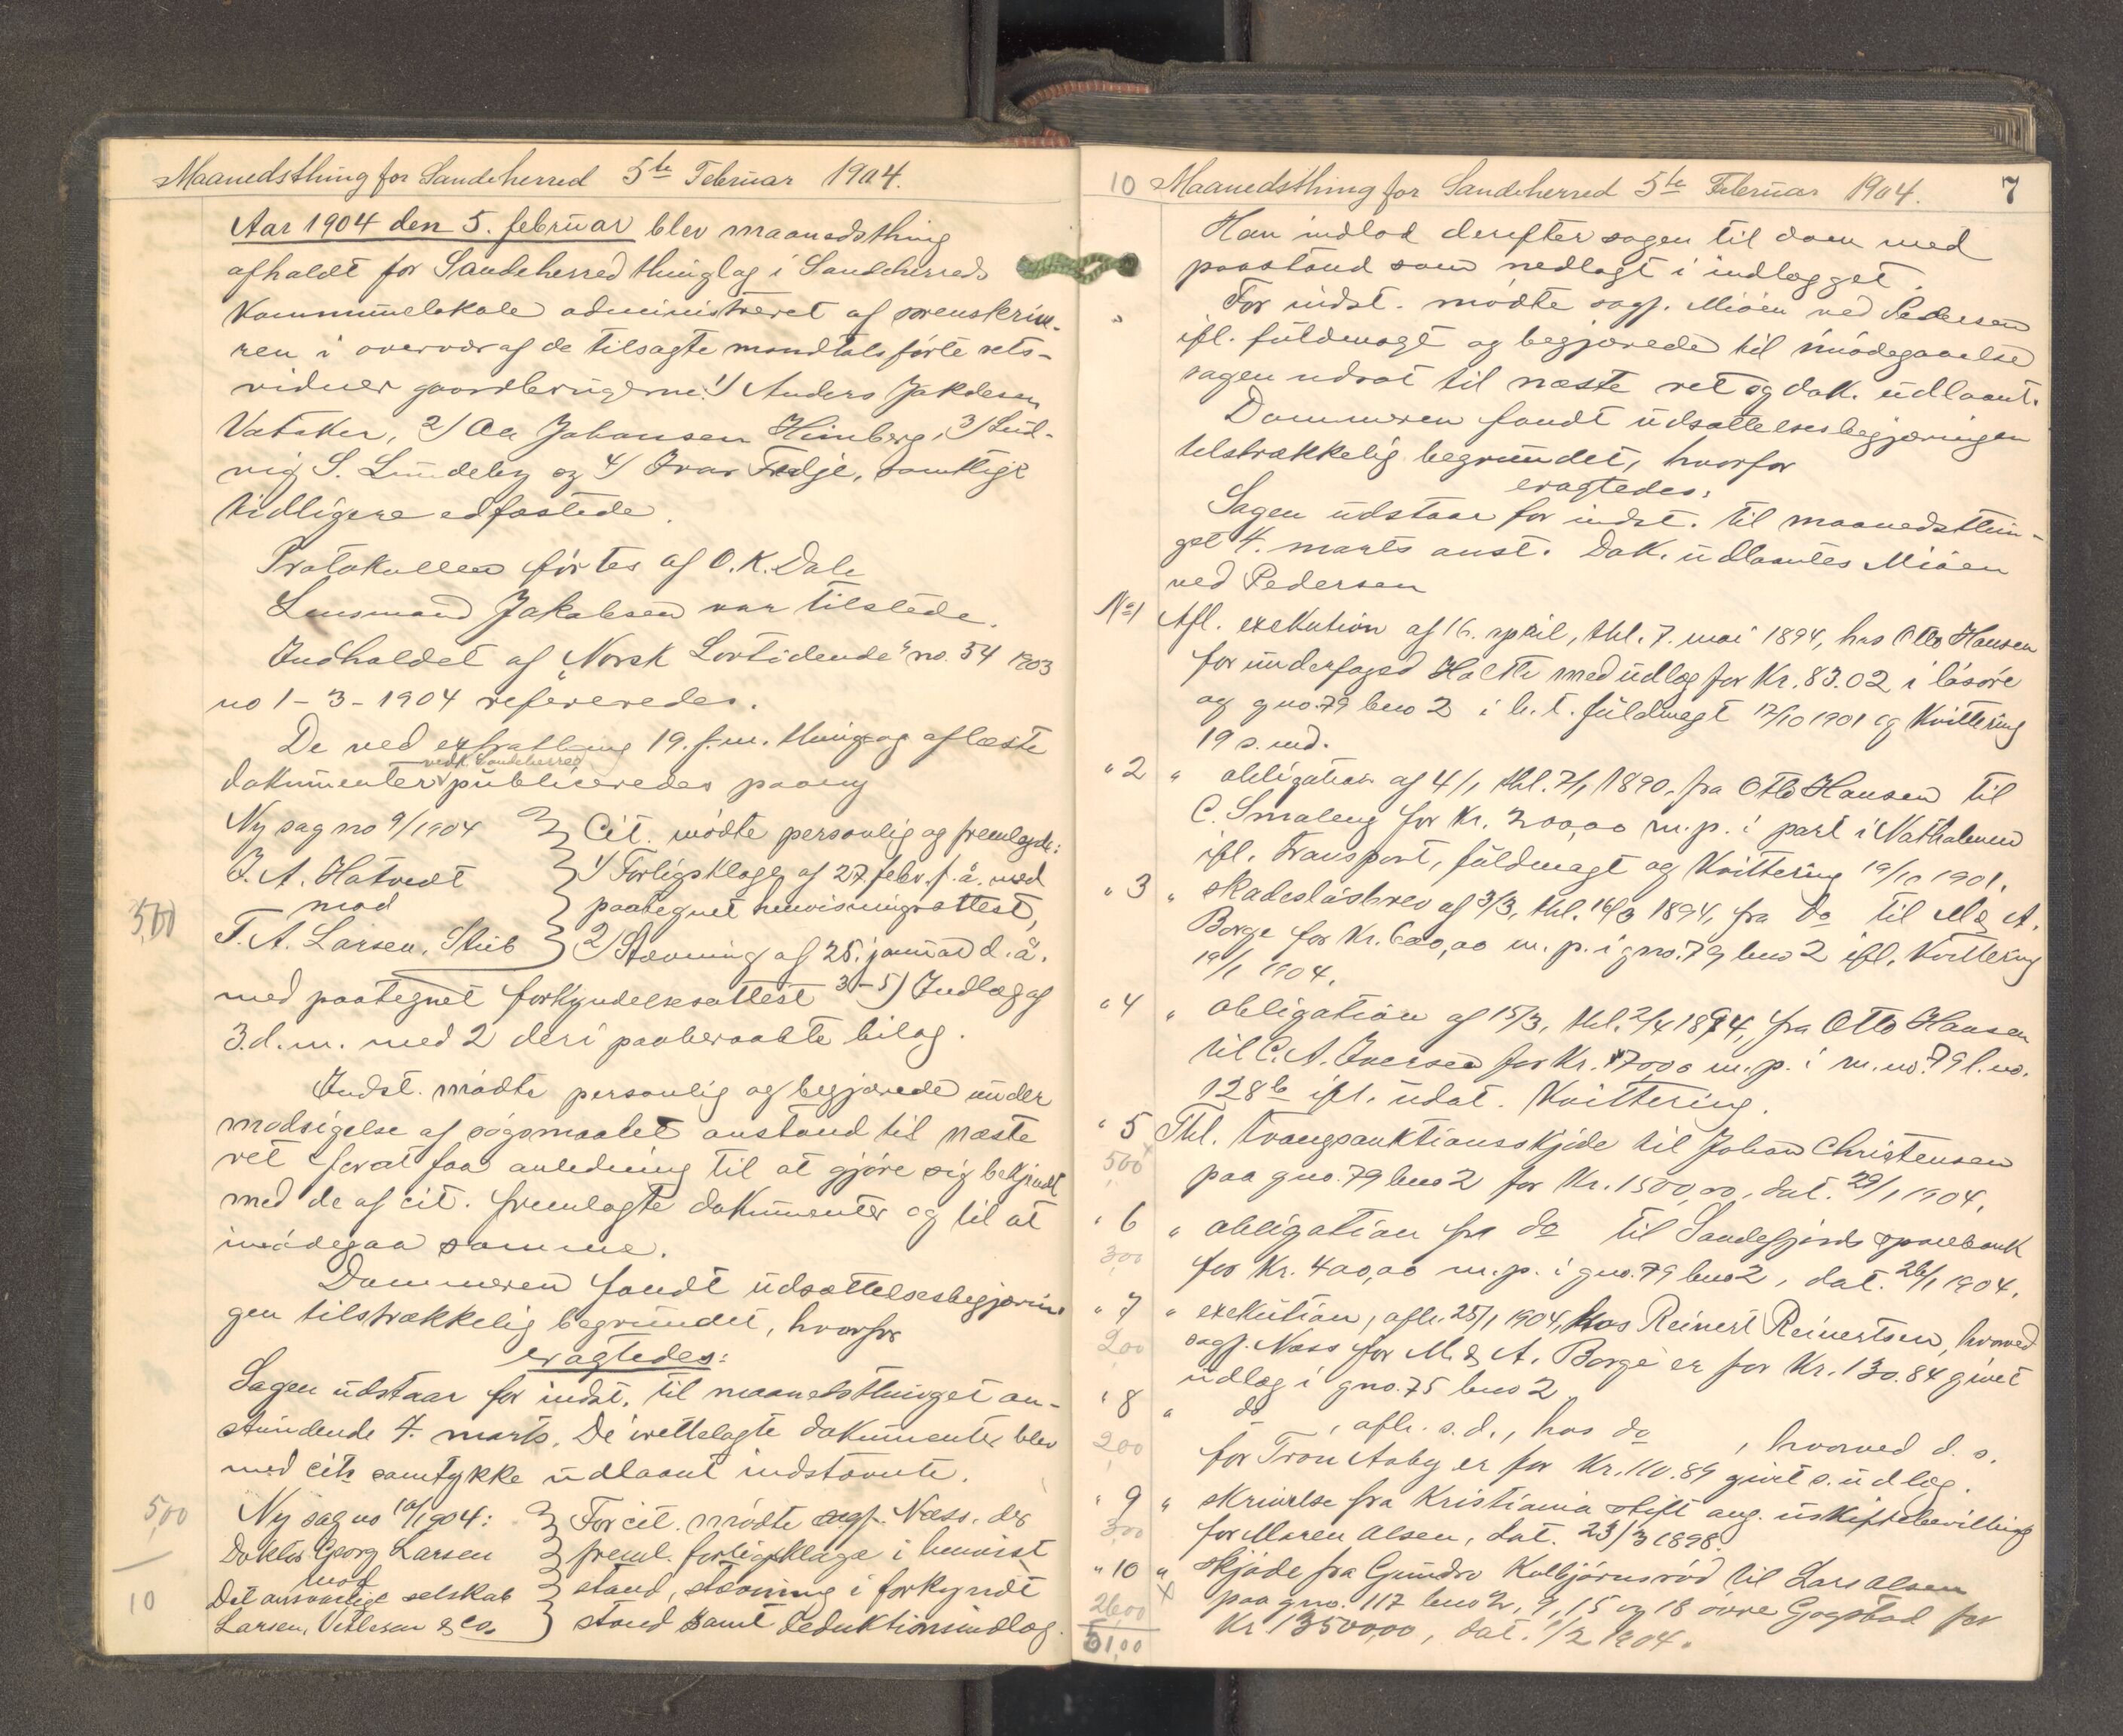 Maanedsthing for Sandeherred 5te Februar 1904.
Aar 1904 den 5. februar blev maanedsthing
afholdt for Sandeherred thinglag i Sandeherreds
Kommunelokale administreret af sorenskrive-
ren i overvær af de tilsagte mandtalsførte rets-
vidner gaardbrugerne: 1) Anders Jakobsen
Vataker, 2) Ole Johansen Himberg, 3) Lud-
vig S. Lundeby og 4) Ivar Fedje, samtlige
tidligere edfæstede.
Protokollen førtes af O. K. Dale
Lensmand Jakobsen var tilstede.
Indholdet af "Norsk Lovtidende" no. 54 1903
no 1-3-1904 refereredes.
De ved extrathing 19. f. m. thing og aflæste
vedk. Sandeherred
dokumenter publiceredes paany
Ny sag no 9/1904 Cit. mødte personlig og fremlagde:
J. A. Hotvedt 1) Forligsklage af 27. febr. f. å. med
mod paategnet henvisningsattest,
5,00
T. A. Larsen, Stub 2) Stævning af 25. januar d. å.
med paategnet forkyndelsesattest 3-5) Indlæg af
3. d. m. med 2 deri paaberaabte bilag.
Indst. mødte personlig og begjærede under
modsigelse af søgsmaalet anstand til næste
ret for at faa anledning til at gjøre sig bekjendt
med de af cit. fremlagte dokumenter og til at
imødegaa samme.
Dommeren fandt udsættelsesbegjærin
gen tilstrækkelig begrundet, hvorfor
eragtedes:
Sagen udstaar for indst. til maanedsthinget an-
stundende 4. marts. De irettelagte dokumenter blev
med cits samtykke udlaant indstævnte.
5,00
Ny sag no 10/1904: For cit. mødte sagf. Næss, der
Doktor Georg Larsen freml. forligsklage i henvist
mod
Det ansvarlige selskab stand, stævning i forkyndt
10
Larsen, Vetlesen & Co. stand samt deduktionsindlæg.
10 Maanedsthing for Sandeherred 5te Februar 1904. 7
Han indlod derefter sagen til dom med
paastand som nedlagt i indlægget.
For indst. mødte sagf. Mióen ved Pedersen
ifl. fuldmagt og begjærede til imødegaaelse
sagen udsat til næste ret og dok. udlaant.
Dommeren fandt udsættelsesbegjæringen
tilstrækkelig begrundet, hvorfor
eragtedes:
Sagen udstaar for indst. til maanedsthin-
get 4. marts anst. Dok. udlaantes Mióen
ved Pedersen
No 1 Afl. exekution af 16. april, thl. 7. mai 1894, hos Otto Hansen
for underfoged Holthe med udlæg for Kr. 83.02 i løsøre
og gno. 79 bno 2 i h. t. fuldmagt 17/10 1901 og Kvittering
19 s. md.
" 2 " obligation af 4/1, thl. 7/1 1890, fra Otto Hansen til
C. Smaleng for Kr. 200,00 m. p. i part i Nathalmen
ifl. transport, fuldmagt og Kvittering 19/10 1901.
" 3 " skadesløsbrev af 3/3, thl. 16/3 1894, fra do til M. & A.
Borge for Kr. 600,00 m. p. i gno. 79 bno 2 ifl. Kvittering
19/1 1904.
" 4 " obligation af 15/3, thl. 2/4 1894, fra Otto Hansen
til C. A. Iversen for Kr. 70,00 m. p. i m. no. 79 l. no.
128b ifl. udat. Kvittering.
" 5 Thl. tvangsauktionsskjøde til Johan Christensen
5,00
paa gno. 79 bno 2 for Kr. 1500,00, dat. 29/1 1904.
" 6 " obligation fra do til Sandefjords sparebank
3,00
for Kr. 400,00 m. p. i gno. 79 bno 2, dat. 26/1 1904.
" 7 " exekution, afh. 25/1 1904, hos Reinert Reinertsen, hvorved
2,00
sagf. Næss for M. & A. Borge er for Kr. 130.84 givet
udlæg i gno. 75 bno 2
" 8 " do , afh. s. d., hos do , hvorved d. s.
2,00
for Tron Aaby er for Kr. 110.89 givet s. udlæg.
" 9 " skrivelse fra Kristiania stift ang. uskiftebevilling
3,00
for Maren Olsen, dat. 23/3 1898.
" 10 " skjøde fra Gundro Kolbjørnsrød til Lars Olsen
x
26,00
paa gno. 117 bno 2, 9, 15 og 18 øvre Gogstad for
51,00
Kr. 13500,00, dat. 1/2 1904.